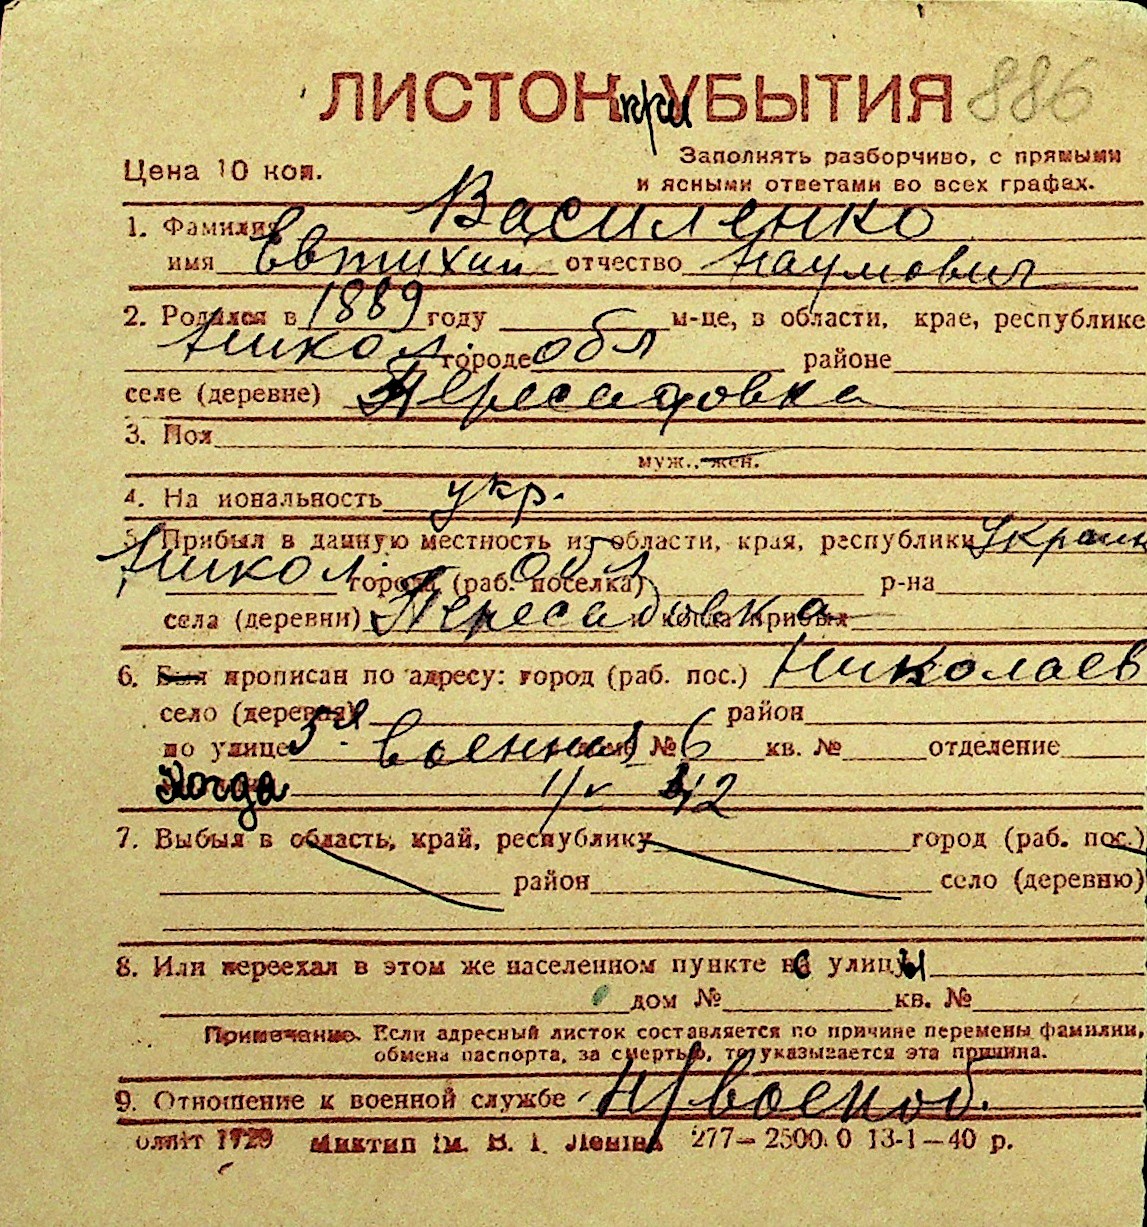 ЛИСТОК при УБЫТИЯ 886
Цена 10 коп.
Заполнять разборчиво, с прямыми
и ясными ответами во всех графах.
1. Фамилия Василенко
имя Евтихий отчество Наумович
2. Родился в 1889 году м-це, в области, крае, республике
Никол. обл городе районе
селе (деревне) Пересадовка
3. Пол
муж., жен.
4. На иональность укр.
5. Прибыл в данную местность из области, края, республики Украин
Никол. обл города (раб. поселка) р-на
села (деревни) Пересадовка и когда прибыл
6. Был прописан по адресу: город (раб. пос.) Николаев
село (деревня) район
по улице 3я Военная дом № 6 кв. № отделение
Когда 1/V 42
7. Выбыл в область, край, республику город (раб. пос.)
район село (деревню)
8. Или переехал в этом же населенном пункте с улицы
дом № кв. №
Примечание. Если адресный листок составляется по причине перемены фамилии,
обмена паспорта, за смертью, то указывается эта причина.
9. Отношение к военной службе н/военоб.
олліт 1729 Миктип ім. В. І. Леніна 277—2500.0 13-1—40 р.